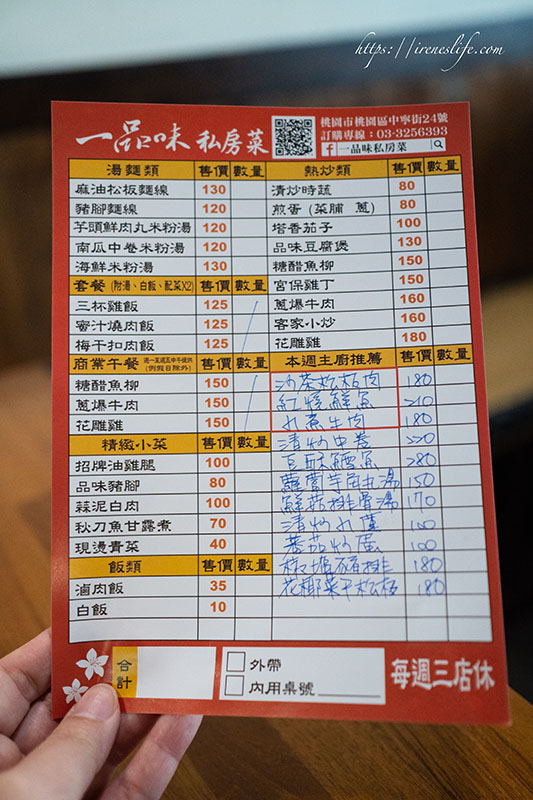 https://ireneslife.com
一品味 私房菜
桃園市桃園區中寧街24號
訂購專線：03-3256393
f 一品味私房菜
湯麵類 售價 數量
麻油松板麵線 130
豬腳麵線 120
芋頭鮮肉丸米粉湯 120
南瓜中卷米粉湯 120
海鮮米粉湯 130
套餐(附湯、白飯、配菜X2) 售價 數量
三杯雞飯 125
蜜汁燒肉飯 125
梅干扣肉飯 125
商業午餐 週一至週五中午提供(例假日除外) 售價 數量
糖醋魚柳 150
蔥爆牛肉 150
花雕雞 150
精緻小菜 售價 數量
招牌油雞腿 100
品味豬腳 80
蒜泥白肉 100
秋刀魚甘露煮 70
現燙青菜 40
飯類 售價 數量
滷肉飯 35
白飯 10
熱炒類 售價 數量
清炒時蔬 80
煎蛋(菜脯 蔥) 80
塔香茄子 100
品味豆腐煲 130
糖醋魚柳 150
宮保雞丁 150
蔥爆牛肉 160
客家小炒 160
花雕雞 180
本週主廚推薦 售價 數量
沙茶松板肉 180
紅燒鮮魚 210
水煮牛肉 180
清炒中卷 220
豆酥鱈魚 280
蘿蔔羊肉丸湯 150
鮮菇排骨湯 170
清炒水蓮 100
蕃茄炒蛋 100
椒塩豬排 180
花椰菜干松板 180
合計
外帶
內用桌號
每週三店休